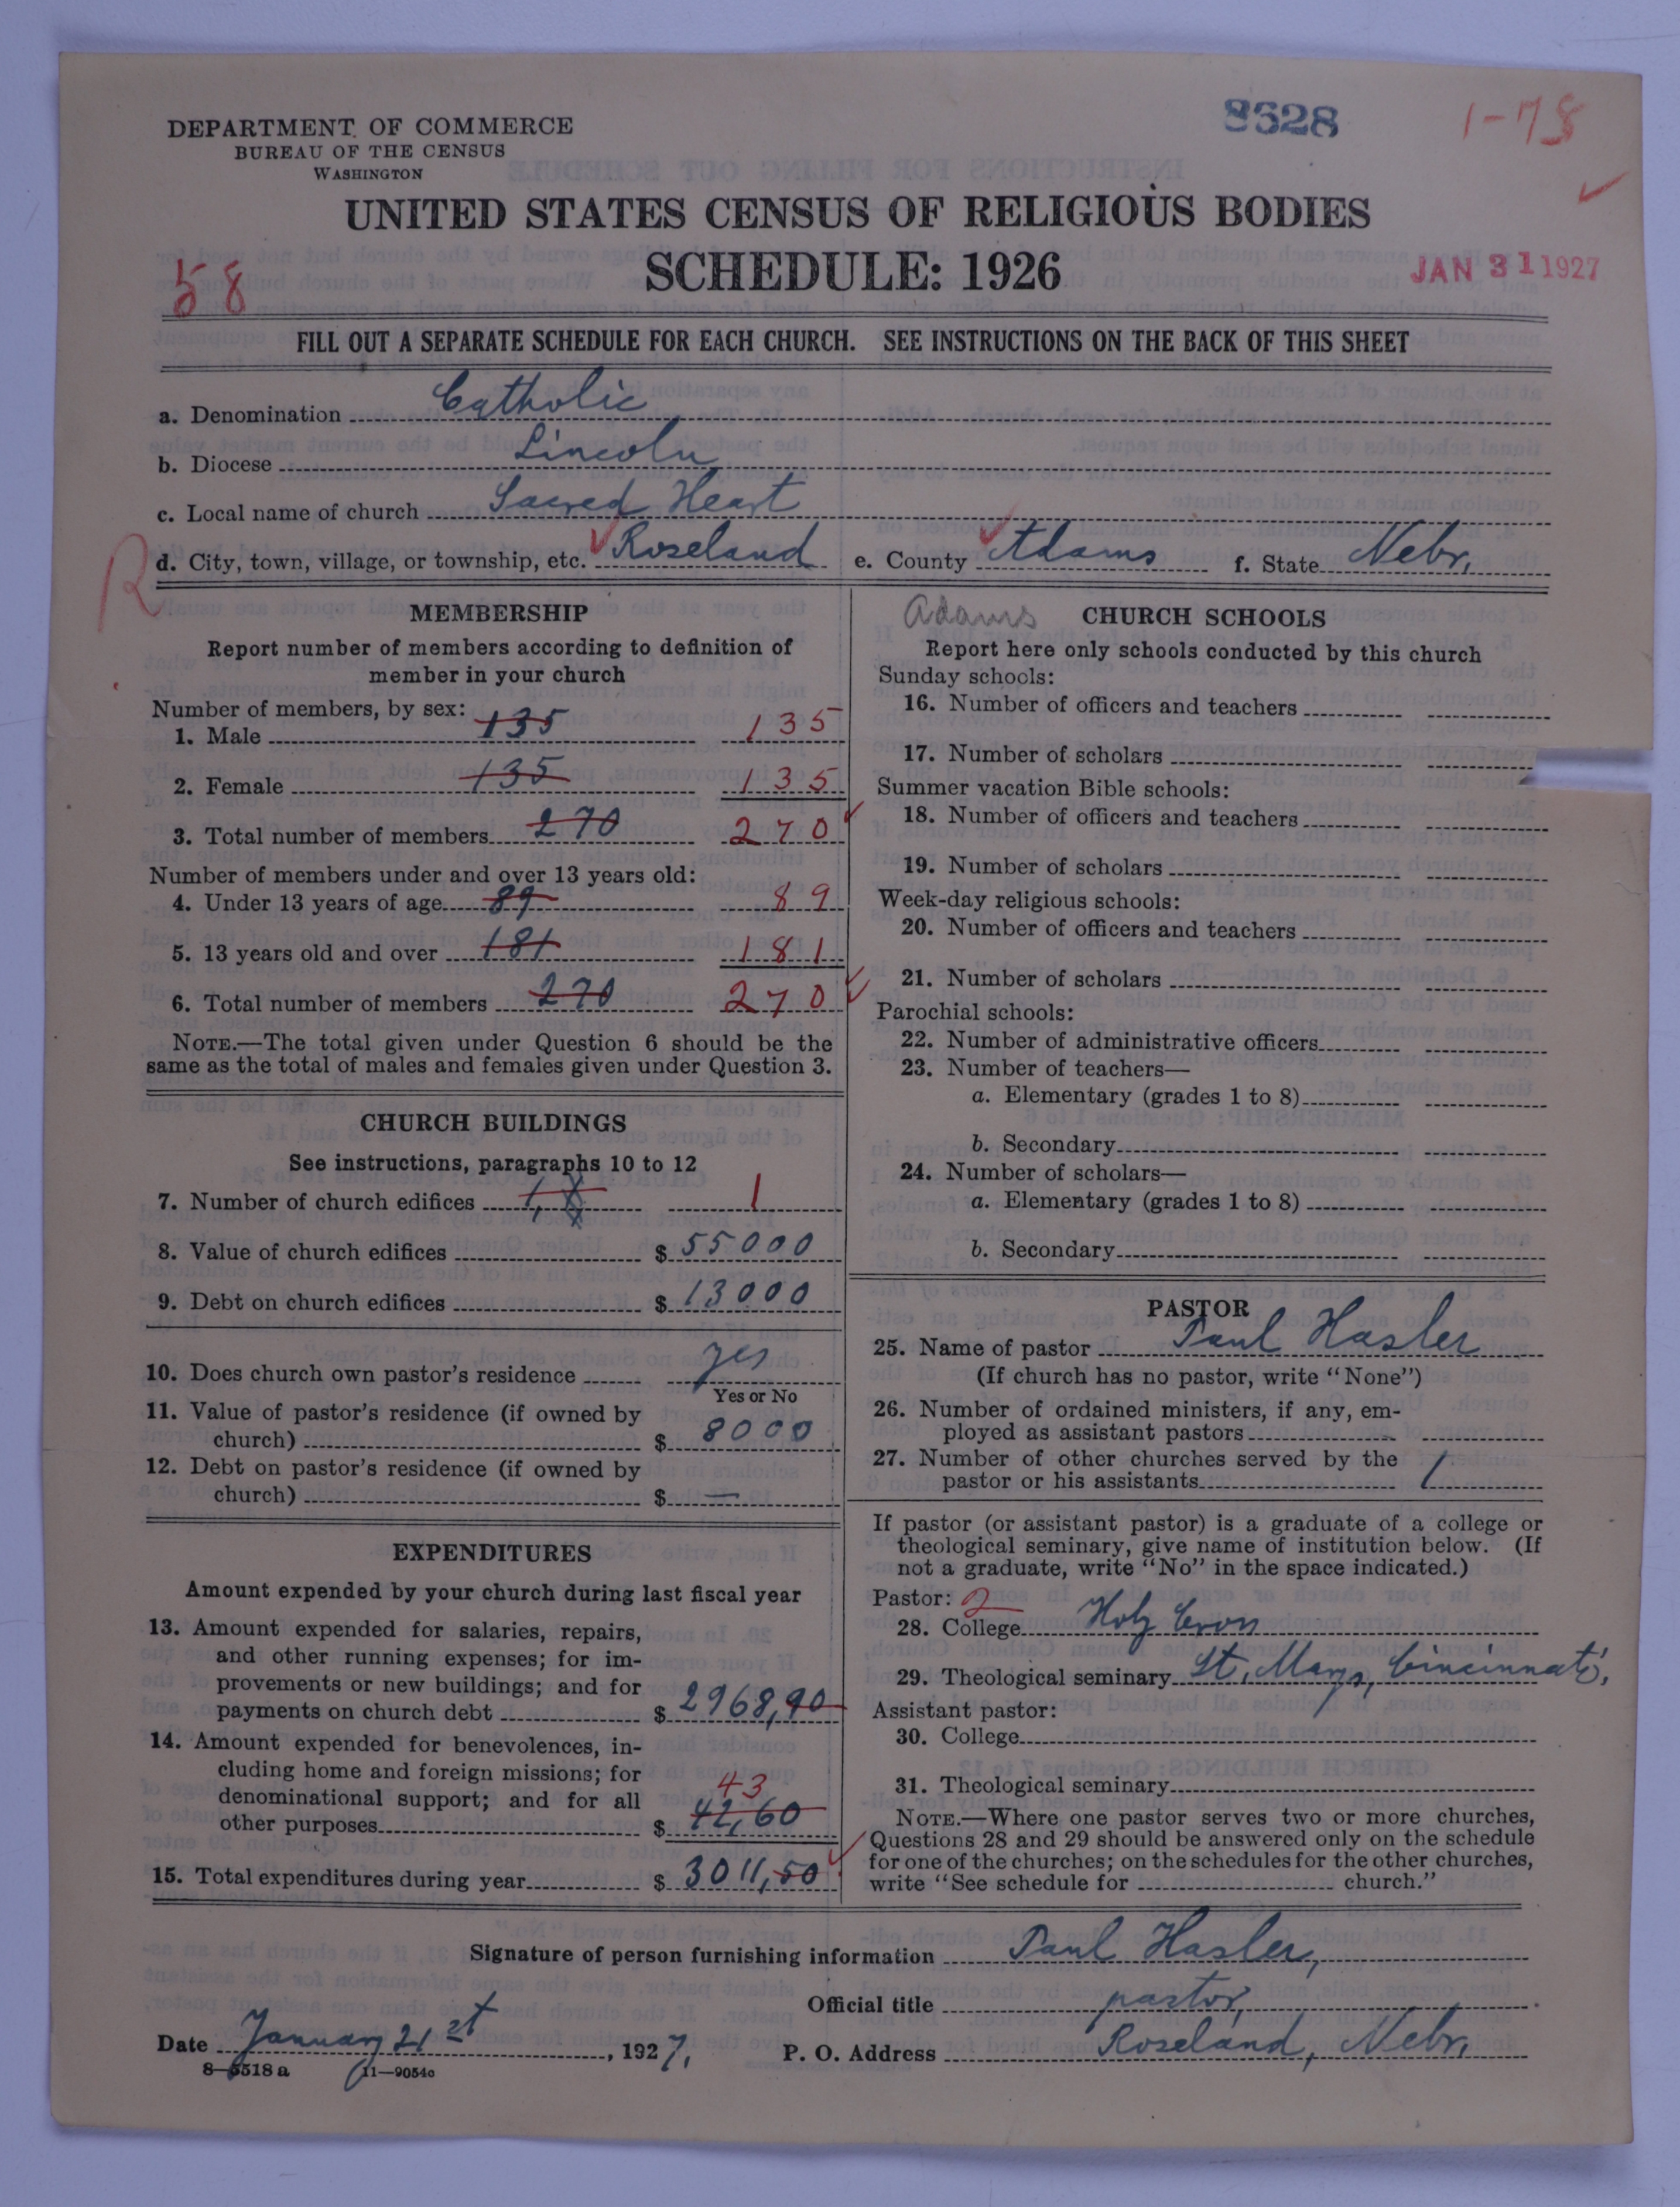 DEPARTMENT OF COMMERCE
BUREAU OF THE CENSUS
WASHINGTON
8628
1-78
UNITED STATES CENSUS OF RELIGIOUS BODIES
SCHEDULE: 1926
58
JAN 31 1927
FILL OUT A SEPARATE SCHEDULE FOR EACH CHURCH. SEE INSTRUCTIONS ON THE BACK OF THIS SHEET
a. Denomination Catholic
b. Diocese Lincoln
c. Local name of church Sacred Heart
R
d. City, town, village, or township, etc. Roseland e. County Adams f. State Nebr.
MEMBERSHIP
Report number of members according to definition of
member in your church
Number of members, by sex:
1. Male 135 135
2. Female 135 135
3. Total number of members 270 270
Number of members under and over 13 years old:
4. Under 13 years of age 89 89
5. 13 years old and over 181 181
6. Total number of members 270 270
NOTE.—The total given under Question 6 should be the
same as the total of males and females given under Question 3.
CHURCH BUILDINGS
See instructions, paragraphs 10 to 12
7. Number of church edifices 1, 1
8. Value of church edifices $ 55000
9. Debt on church edifices $ 13000
10. Does church own pastor's residence yes
Yes or No
11. Value of pastor's residence (if owned by
church) $ 8000
12. Debt on pastor's residence (if owned by
church) $ —
EXPENDITURES
Amount expended by your church during last fiscal year
13. Amount expended for salaries, repairs,
and other running expenses; for im-
provements or new buildings; and for
payments on church debt $ 2968,90
14. Amount expended for benevolences, in-
cluding home and foreign missions; for
denominational support; and for all 43
other purposes $ 42,60
15. Total expenditures during year $ 3011,50
Adams CHURCH SCHOOLS
Report here only schools conducted by this church
Sunday schools:
16. Number of officers and teachers
17. Number of scholars
Summer vacation Bible schools:
18. Number of officers and teachers
19. Number of scholars
Week-day religious schools:
20. Number of officers and teachers
21. Number of scholars
Parochial schools:
22. Number of administrative officers
23. Number of teachers—
a. Elementary (grades 1 to 8)
b. Secondary
24. Number of scholars—
a. Elementary (grades 1 to 8)
b. Secondary
PASTOR
25. Name of pastor Paul Hasler
(If church has no pastor, write "None")
26. Number of ordained ministers, if any, em-
ployed as assistant pastors
27. Number of other churches served by the
pastor or his assistants 1
If pastor (or assistant pastor) is a graduate of a college or
theological seminary, give name of institution below. (If
not a graduate, write "No" in the space indicated.)
Pastor: 2
28. College Holy Cross
29. Theological seminary St. Marys, Cincinnati,
Assistant pastor:
30. College
31. Theological seminary
NOTE.—Where one pastor serves two or more churches,
Questions 28 and 29 should be answered only on the schedule
for one of the churches; on the schedules for the other churches,
write "See schedule for church."
Signature of person furnishing information Paul Hasler,
Official title pastor,
Date January 21st, 1927, P. O. Address Roseland, Nebr.
8—6518 a 11—9054c